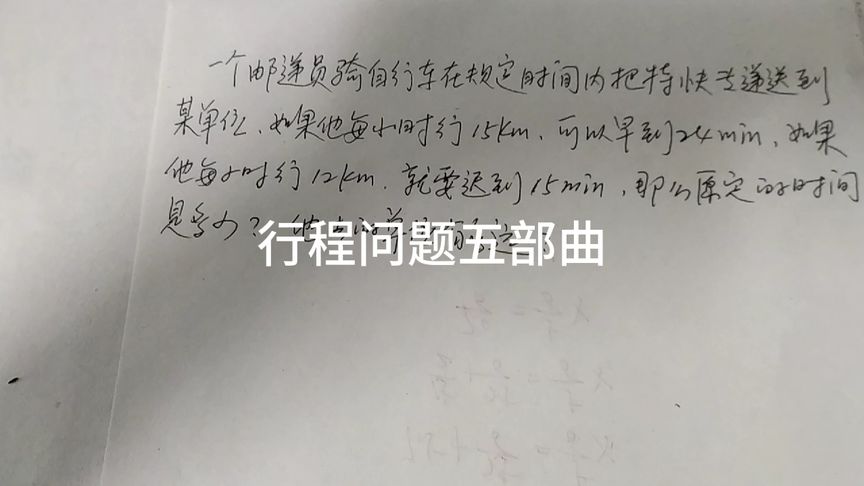 一个邮递员骑自行车在规定时间内把特快专递送到
某单位、如果他每小时行15km、可以早到24min、如果
他每小时行12km、就要迟到15min,那么原定的时间
是多少?他去的单位有多远?
行程问题五部曲